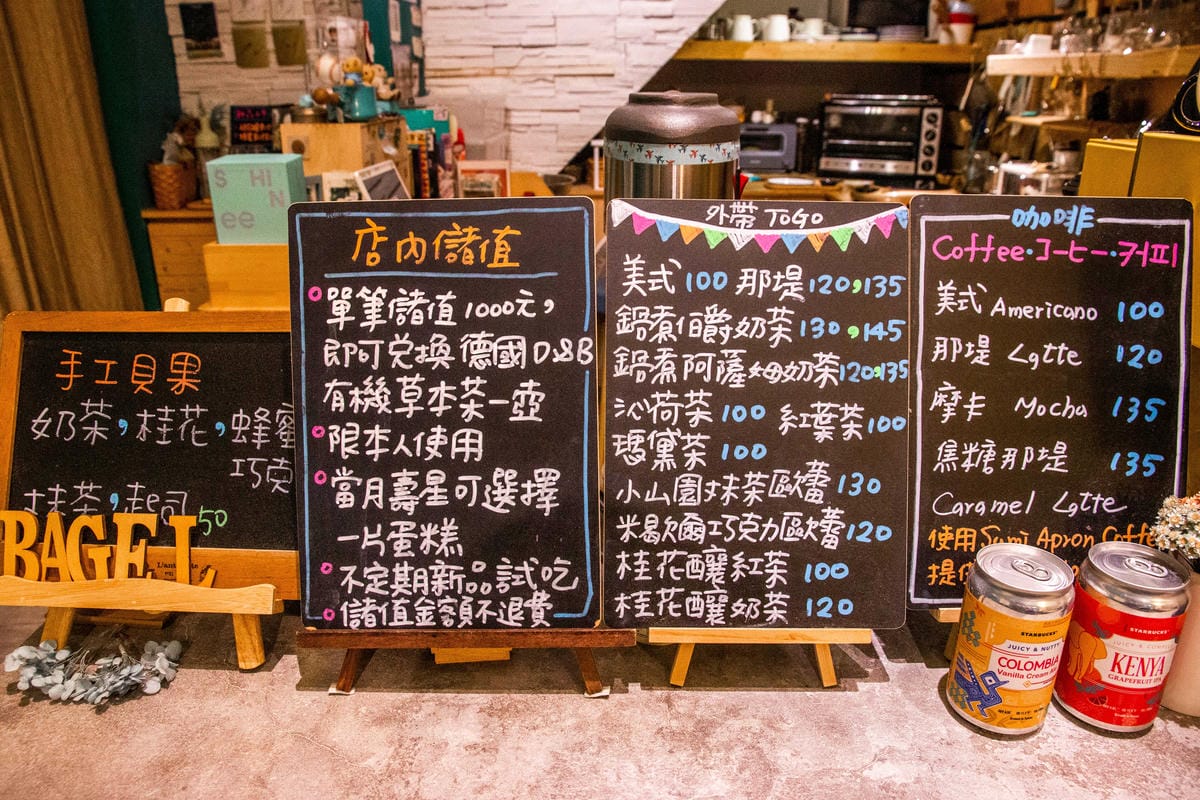 手工貝果
奶茶,桂花,蜂蜜
巧克
抹茶,起司50
BAGEL
SHI
N
ee
店內儲值
單筆儲值1000元,
即可兌換德國D&B
有機草本茶一壺
限本人使用
當月壽星可選擇
一片蛋糕
不定期新品試吃
儲值金額不退費
外帶 ToGo
美式 100 那堤 120,135
鍋煮伯爵奶茶 130,145
鍋煮阿薩姆奶茶120,135
沁荷茶 100 紅葉茶100
瑪黛茶 100
小山園抹茶歐蕾 130
米歇爾巧克力歐蕾 120
桂花釀紅茶 100
桂花釀奶茶 120
咖啡
Coffee·コーヒー·커피
美式 Americano 100
那堤 Latte 120
摩卡 Mocha 135
焦糖那堤 135
Caramel Latte
使用Sumi Apron Coffe
STARBUCKS
JUICY & NUTTY
COLOMBIA
STARBUCKS
KENYA
GRAPEFRUIT IPA